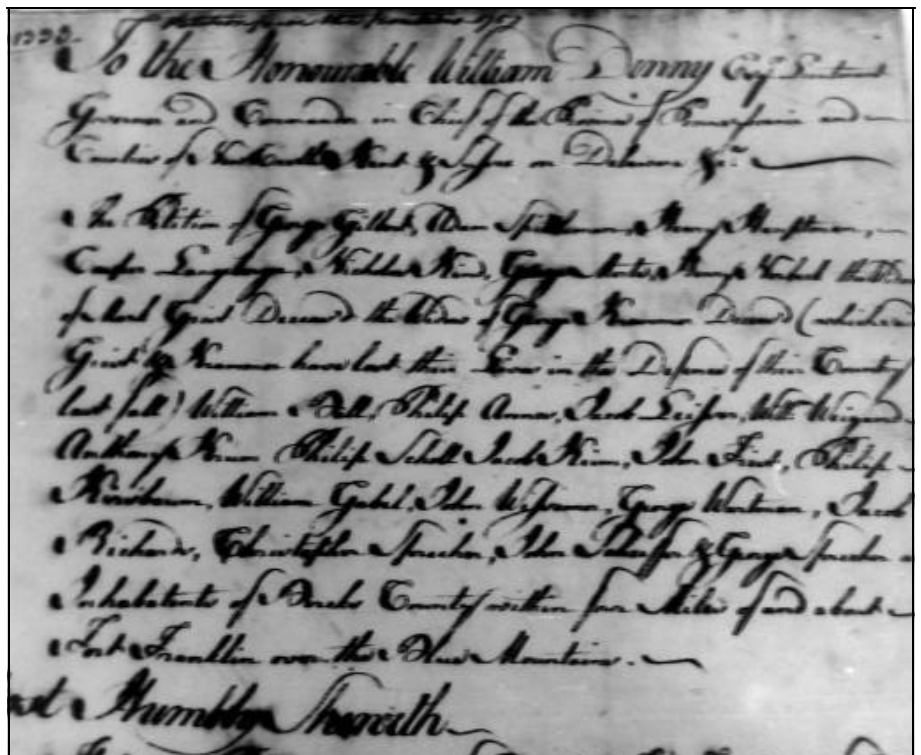 Petition from the Frontiers 1757
To the Honourable William Denny Esqr Lieutenant
Governor and Commander in Chief of the Province of Pennsylvania and
Counties of New Castle Kent & Sussex on Delaware &ca
The Petition of George Gilbert, Adam Spittleman, Henry Hauptman,
Casper Langberger, Nicholas Kind, George Henry the Widow
of Mark Grist Deceas'd the Widow of George Krammer Deceas'd (which
Grist & Krammer have lost their Lives in the Defence of their County
last fall) William Ball, Philip Annes, Jacob Leisser, Will Weigand
Anthony Krum Philip Scholl Jacob Keim, John Frist, Philip
Kirshbaum, William Gabel, John Wissemer, George Wortman, Jacob
Richards, Christopher Sprecher, John Scheffer & George Sprecher
Inhabitants of Berks County within four Miles of and about
Fort Franklin over the Blue Mountains.
Humbly Sheweth